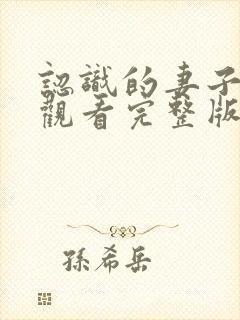 認識的妻子
觀看完整版
孫希岳